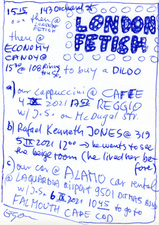 15 15 143 orchard st
then @ LONDON
then @ FETISH
ECONOMY
CANDY @
108 to buy a DILDO
a) our cappuccini @ CAFFE
4 IX 2021 17 55 REGGIO
w/J.S. on McDougal St.
b) Rafael Kenneth JONES @ 319
5 IX 2021 12 00 → he wants to see
the beige room (he lived here be
fore)
c) our car @ ALAMO car rental
@ LAGUARDIA airport 9501 DITMARS BLVD
w/J.S. 6 IX 2021 10 45 to go to
FALMOUTH CAPE COD